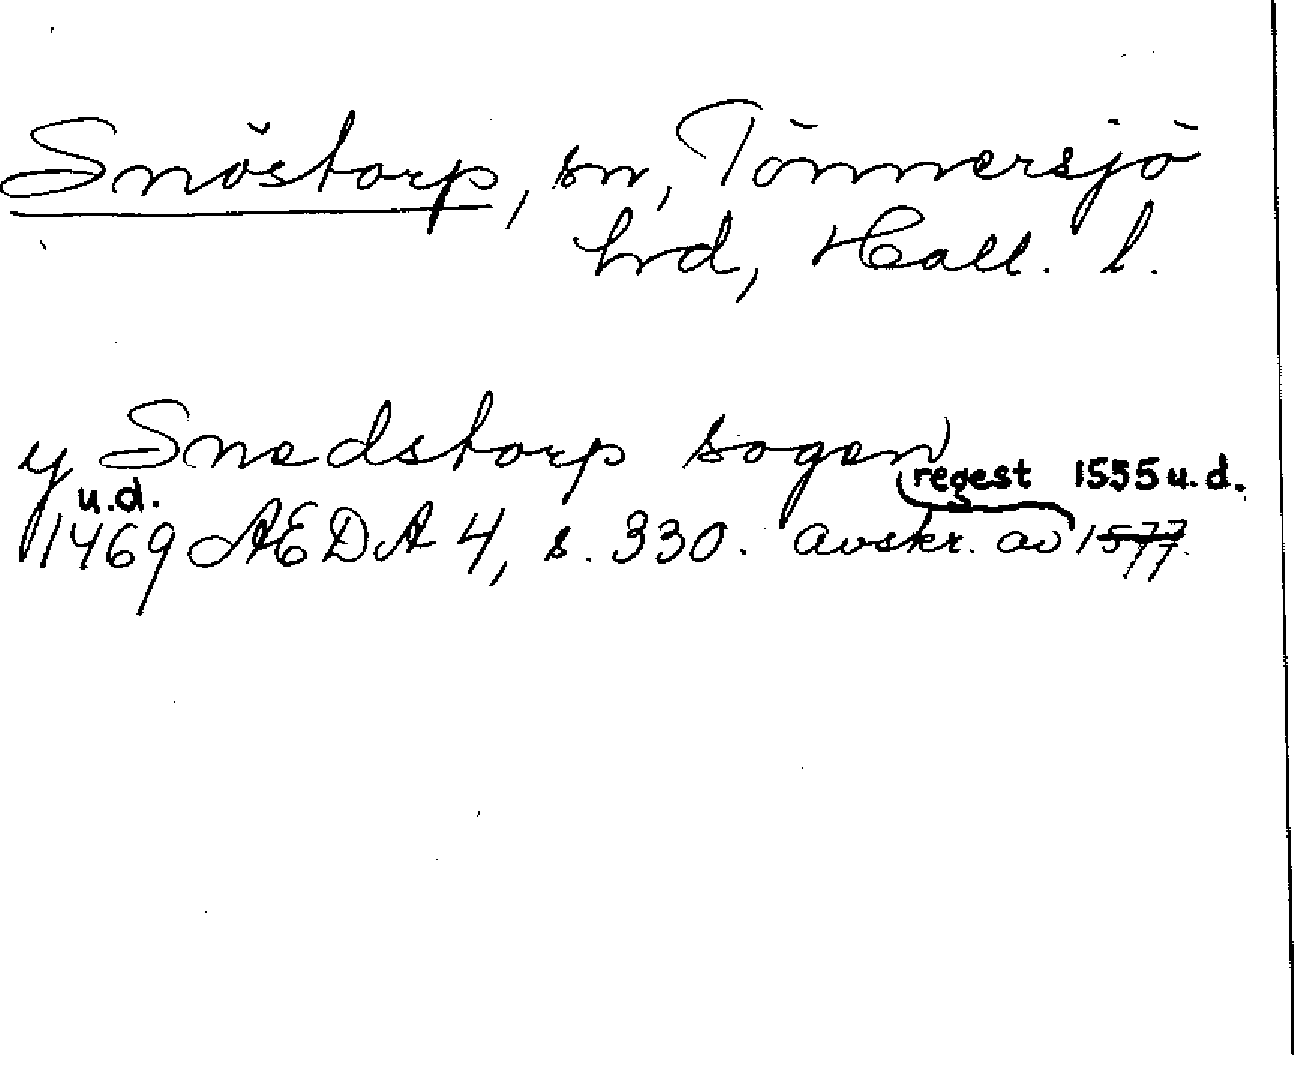 Snöstorp, sn, Tönnersjö
hrd, Hall. l.
y Snedstorp sogen
regest 1555 u.d.
u.d.
1469 AEDA 4, s. 330. avskr. av 1577.